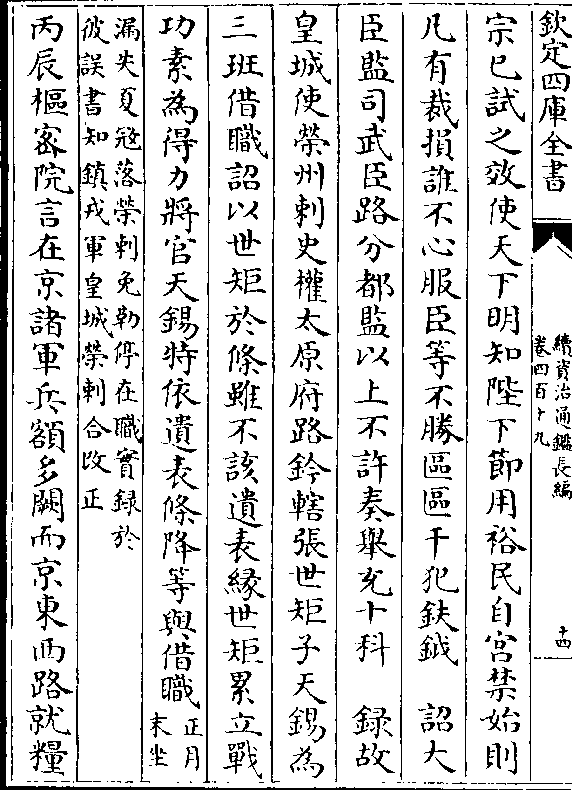 欽定四庫全書
續資治通鑑長編
卷四百十九
十四
宗已試之效使天下明知陛下節用裕民自宮禁始則
凡有裁損誰不心服臣等不勝區區干犯鈇鉞　詔大
臣監司武臣路分都監以上不許奏舉充十科　録故
皇城使榮州刺史權太原府路鈐轄張世矩子天錫為
三班借職詔以世矩於條雖不該遺表緣世矩累立戰
功素為得力將官天錫特依遺表條降等與借職
正月
末坐
漏失夏冦落榮刺免勒停在職實録於
彼誤書知鎮戎軍皇城榮刺合改正
丙辰樞宻院言在京諸軍兵額多闕而京東西路就糧